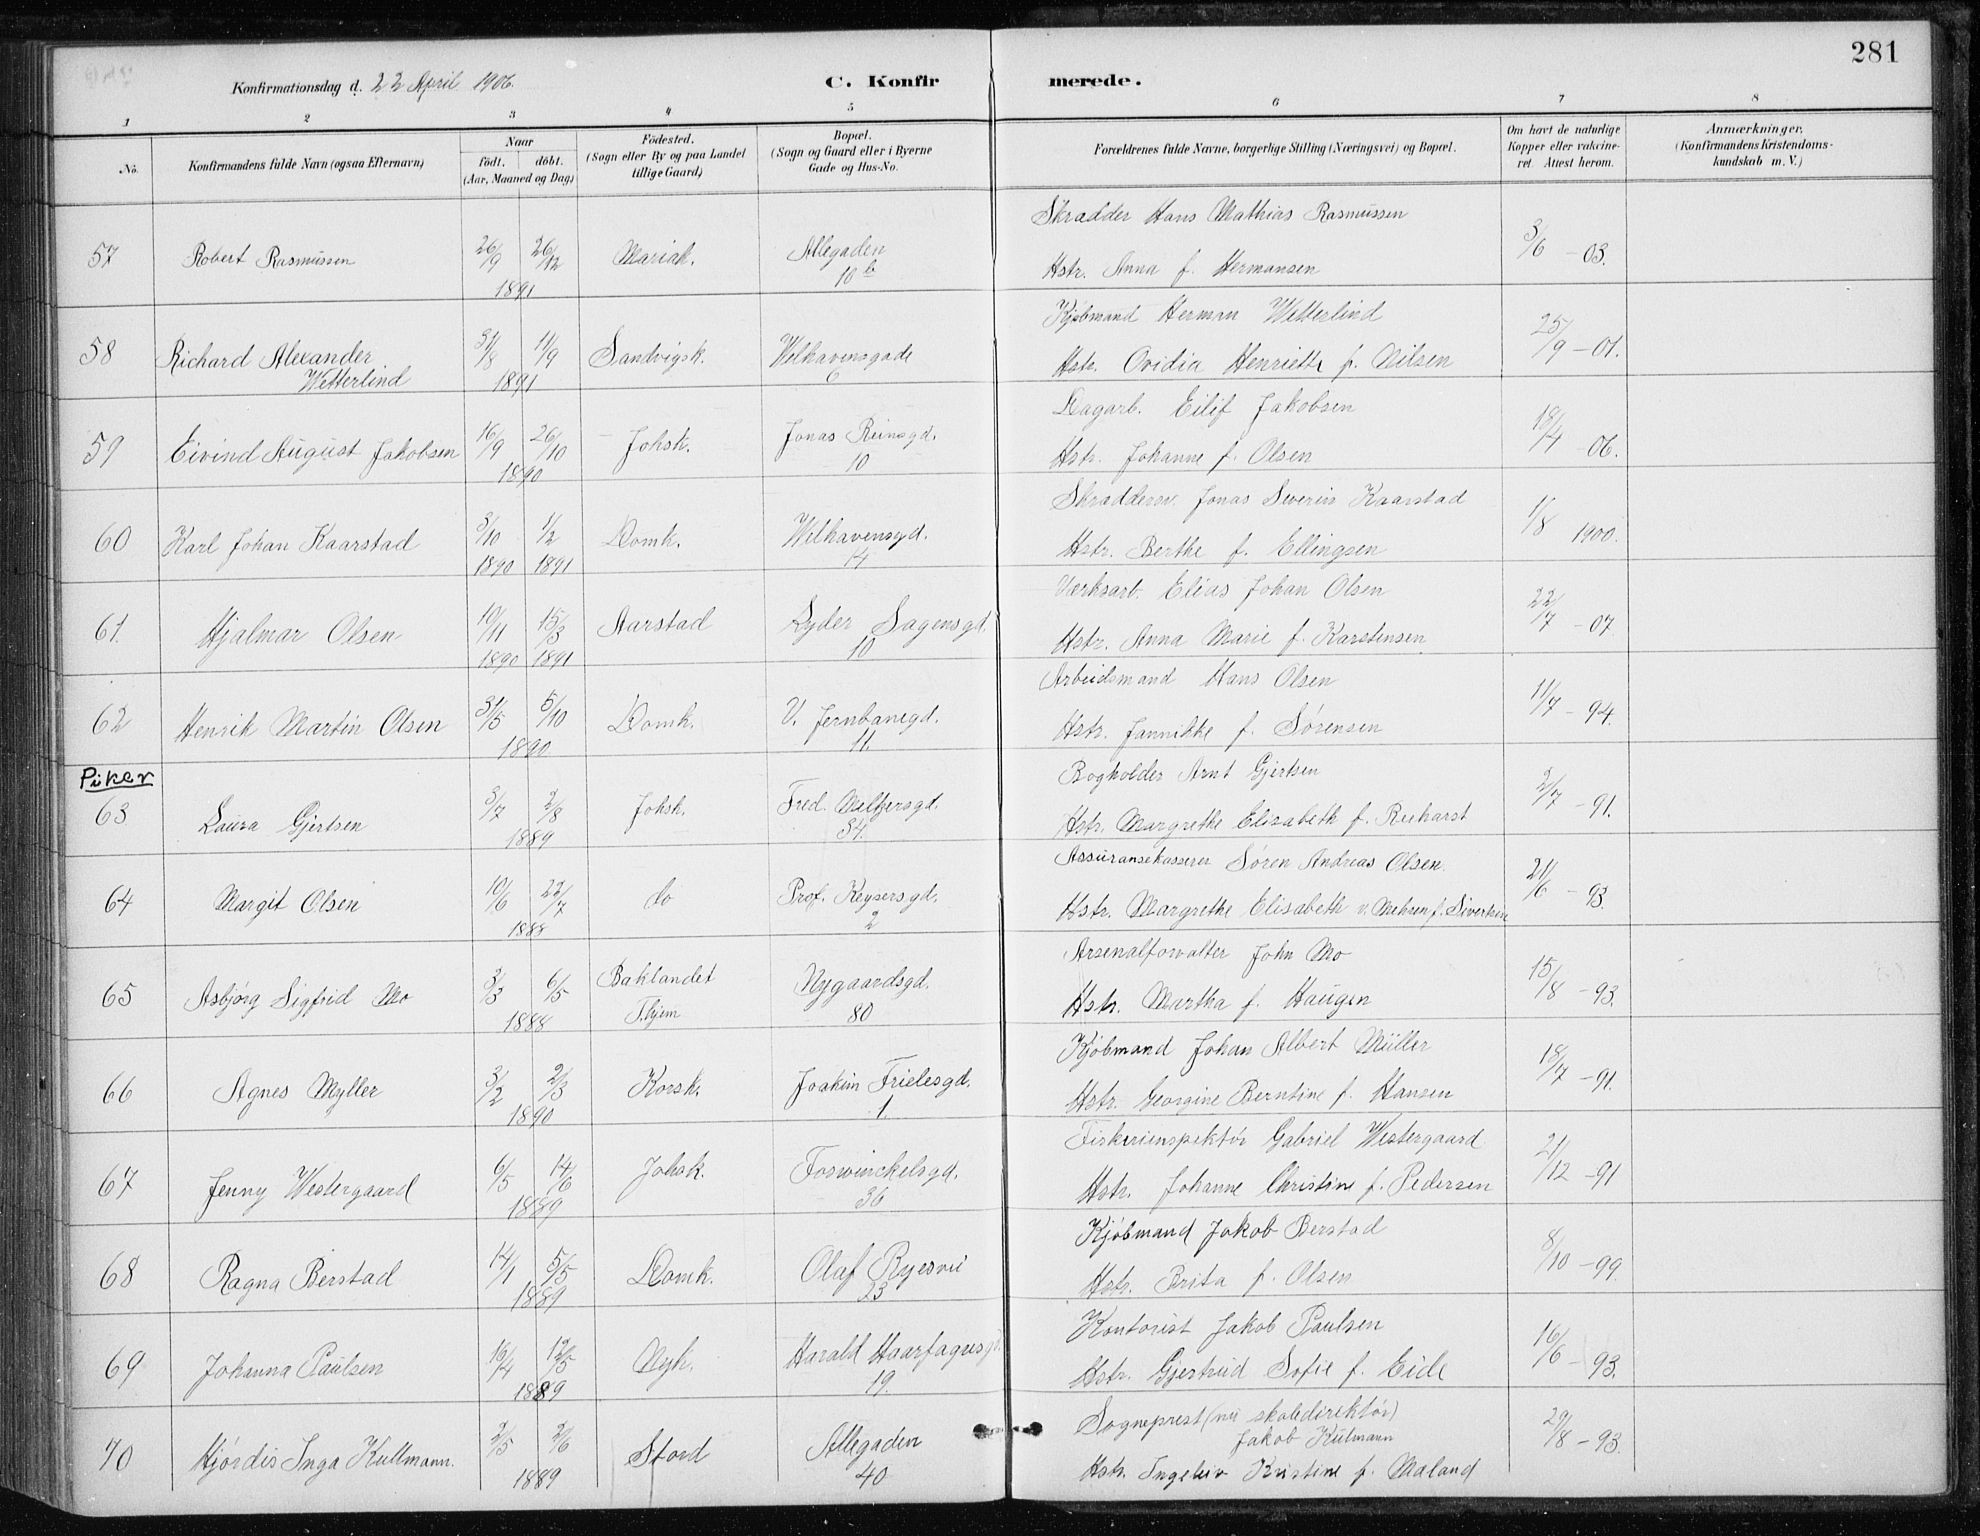 281
Konfirmationsdag d. 22 April 1906.
C. Konfirmerede.
1 2 3 4 5 6 7 8
No.
Konfirmandens fulde Navn (ogsaa Efternavn)
Naar
födt. döbt.
(Aar, Maaned og Dag)
Födested.
(Sogn eller By og paa Landet
tillige Gaard)
Bopæl.
(Sogn og Gaard eller i Byerne
Gade og Hus-No.
Forældrenes fulde Navne, borgerlige Stilling (Næringsvei) og Bopæl.
Om havt de naturlige
Kopper eller vakcine-
ret. Attest herom.
Anmærkninger.
(Konfirmandens Kristendoms-
kundskab m. V.)
Skrædder Hans Mathias Rasmussen
57 Robert Rasmussen 26/9 26/12 Mariak. Allegaden 3/6 - 03.
1891 10 b Hstr. Anna f. Hermansen
Kjøbmand Herman Wetterlind
58 Richard Alexander 31/8 11/9 Sandvigsk. Welhavensgade 25/9 - 01.
Wetterlind 1891 6 Hstr. Ovidia Henriette f. Nilsen
Dagarb. Eilif Jakobsen
59 Eivind August Jakobsen 16/9 26/10 Johsk. Jonas Reinsgd. 18/4 06.
1890 10 Hstr. Johanne f. Olsen
Skræddersv. Jonas Severin Kaarstad
60 Karl Johan Kaarstad 3/10 1/2 Domk. Welhavensgd. 1/8 1900.
1890 1891 14 Hstr. Berthe f. Ellingsen
Værksarb. Elias Johan Olsen
61. Hjalmar Olsen 10/11 15/3 Aarstad Lyder Sagensgd. 22/7 - 07.
1890 1891 10 Hstr. Anna Marie f. Karstensen
Arbeidsmand Hans Olsen
62 Henrik Martin Olsen 31/5 5/10 Domk. V. Jernbanegd. 11/7 - 94.
1890 11. Hstr. Jannikke f. Sørensen
Piker
Bogholder Arnt Gjertsen
63 Laura Gjertsen 3/7 2/8 Johsk. Fred. Meltzersgd. 2/7 - 91.
1889 34. Hstr. Margrethe Elisabeth f.
Assuransekasserer Søren Andreas Olsen.
64 Margit Olsen 10/6 22/7 do Prof. Keysersgd. 21/6 - 93.
1888 2 Hstr. Margrethe Elisabeth v. Mehren f. Sivertsen
Arsenalforvalter John Mo
65 Asbjörg Sigfrid Mo 3/3 6/5 Baklandet Nygaardsgd. 15/8 - 93.
1888 T.hjem 80 Hstr. Martha f. Haugen
Kjöbmand Johan Albert Müller
66 Agnes Myller 3/2 2/3 Korsk. Joakim Frielesgd. 18/7 - 91.
1890 1. Hstr. Georgine Berntine f. Hansen
Fiskeriinspektör Gabriel Westergaard
67 Jenny Westergaard 6/5 14/6 Johsk. Foswinckelsgd. 21/12 - 91
1889 36 Hstr. Johanne Christine f. Pedersen
Kjöbmand Jakob Berstad
68 Ragna Berstad 14/1 5/5 Domk. Olaf Ryesvei 8/10 - 99.
1889 23 Hstr. Brita f. Olsen
Kontorist Jakob Paulsen
69 Johanna Paulsen 16/4 12/5 Nyk. Harald Haarfagresgd. 16/6 - 93.
1889 19. Hstr. Gjertrud Sofie f. Eide
Sogneprest (nu skoledirektör)
Jakob Kulmann
70 Hjördis Inga Kullmann. 2/5 2/6 Stord Allegaden 29/8 - 93.
1889 40 Hstr. Ingeleiv Kristine f. Mæland